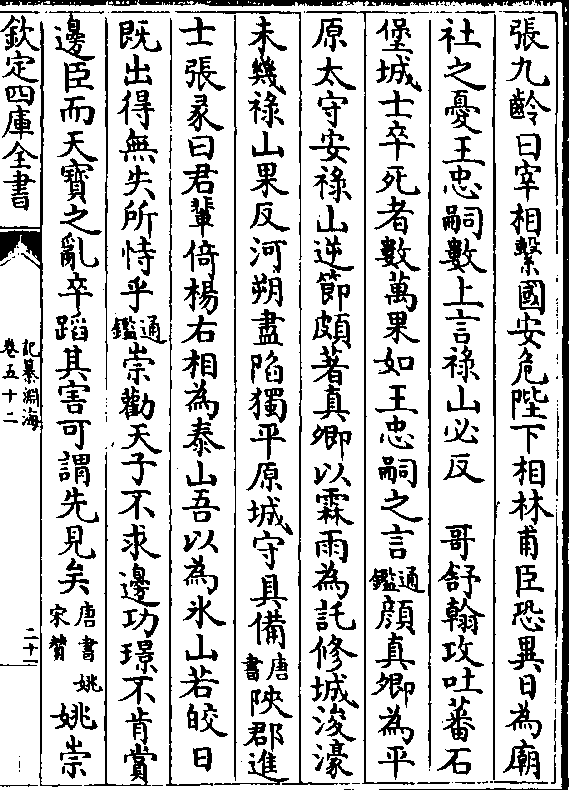 張九齡曰宰相繫國安危陛下相林甫臣恐異日為廟
社之憂王忠嗣數上言祿山必反　哥舒翰攻吐蕃石
堡城士卒死者數萬果如王忠嗣之言通鑑顔真卿為平
原太守安祿山逆節頗著真卿以霖雨為託修城浚濠
未幾祿山果反河朔盡陷獨平原城守具備唐書陜郡進
士張彖曰君輩倚楊右相為泰山吾以為氷山若皎日
既出得無失所恃乎通鑑崇勸天子不求邊功璟不肯賞
邊臣而天寶之亂卒蹈其害可謂先見矣唐書姚宋贊　姚崇
欽定四庫全書
記纂淵海
卷五十二
二十